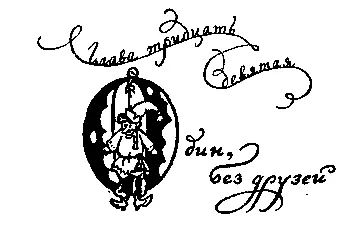 Глава тридцать
девятая
Один,
без друзей